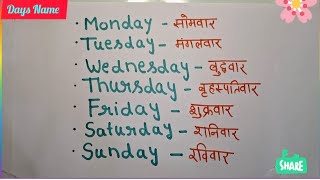 Days Name
· Monday - सोमवार
· Tuesday - मंगलवार
· Wednesday - बुद्धवार
· Thursday - बृहस्पतिवार
· Friday - शुक्रवार
· Saturday - शनिवार
· Sunday - रविवार
SHARE